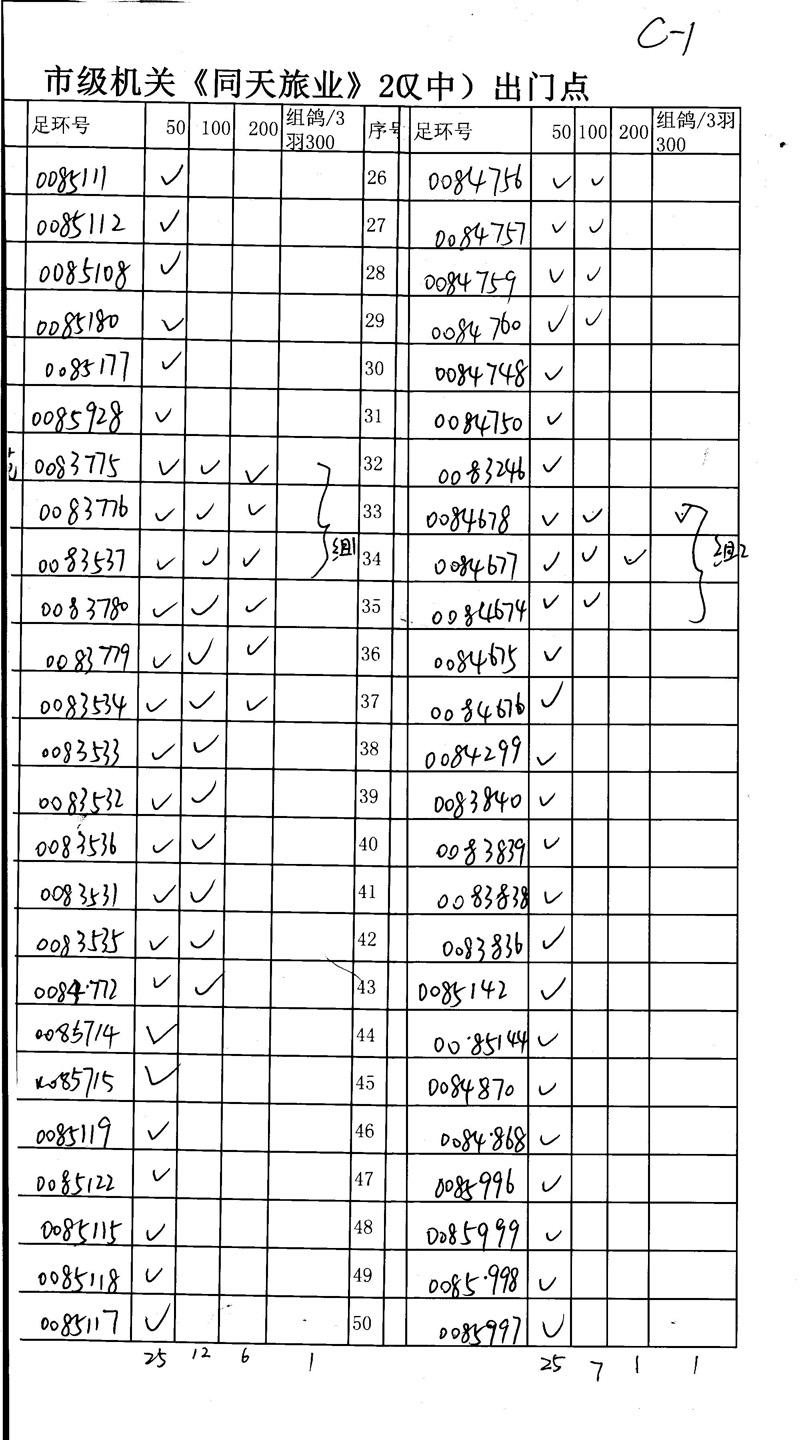 C-1
市级机关《同天旅业》2仅中）出门点
足环号 50 100 200 组鸽/3羽300 序号 足环号 50 100 200 组鸽/3羽300
0085111 ✓ 26 0084756 ✓ ✓
0085112 ✓ 27 0084757 ✓ ✓
0085108 ✓ 28 0084759 ✓ ✓
0085180 ✓ 29 0084760 ✓ ✓
0085177 ✓ 30 0084748 ✓
0085928 ✓ 31 0084750 ✓
0083775 ✓ ✓ ✓ 32 0083246 ✓
0083776 ✓ ✓ ✓ 33 0084678 ✓ ✓ ✓
0083537 ✓ ✓ ✓ 组1 34 0084677 ✓ ✓ ✓ 组2
0083780 ✓ ✓ ✓ 35 0084674 ✓ ✓
0083779 ✓ ✓ ✓ 36 0084675 ✓
0083534 ✓ ✓ ✓ 37 0084676 ✓
0083533 ✓ ✓ 38 0084299 ✓
0083532 ✓ ✓ 39 0083840 ✓
0083536 ✓ ✓ 40 0083839 ✓
0083531 ✓ ✓ 41 0083838 ✓
0083535 ✓ ✓ 42 0083836 ✓
0084772 ✓ ✓ 43 0085142 ✓
0085714 ✓ 44 0085144 ✓
0085715 ✓ 45 0084870 ✓
0085119 ✓ 46 0084868 ✓
0085122 ✓ 47 0085996 ✓
0085115 ✓ 48 0085999 ✓
0085118 ✓ 49 0085998 ✓
0085117 ✓ 50 0085997 ✓
25 12 6 1 25 7 1 1